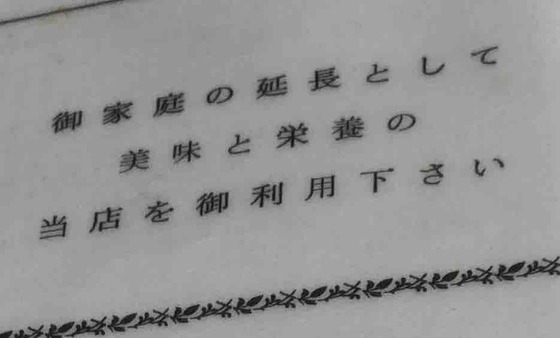 御家庭の延長として
美味と栄養の
当店を御利用下さい